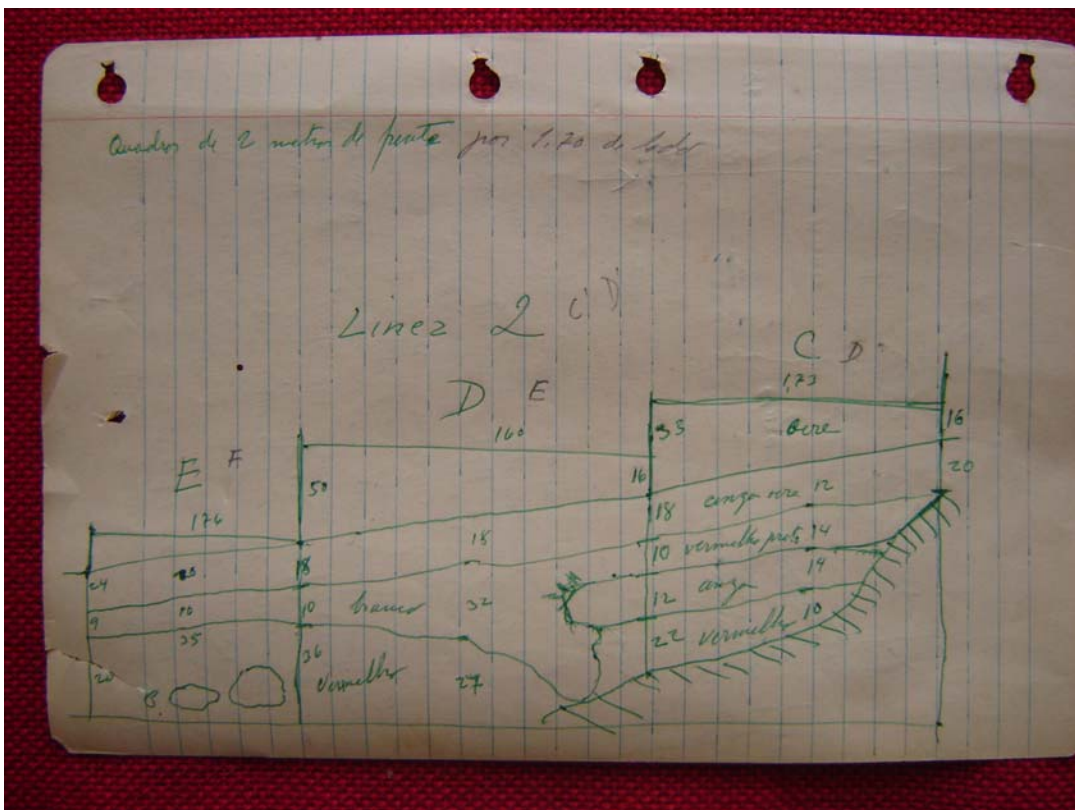 Quadros de 2 metros de frente por 1,70 de lado
Linea 2 C D
C D
1,73
D E
160
35 ocre 16
E F
50
16
20
176
18 cinza ocre 12
18
10 vermelho preto 14
24
18
9 10 10 branco 32
12 cinza 14
35
22 vermelho 10
20
36 vermelho 27
B